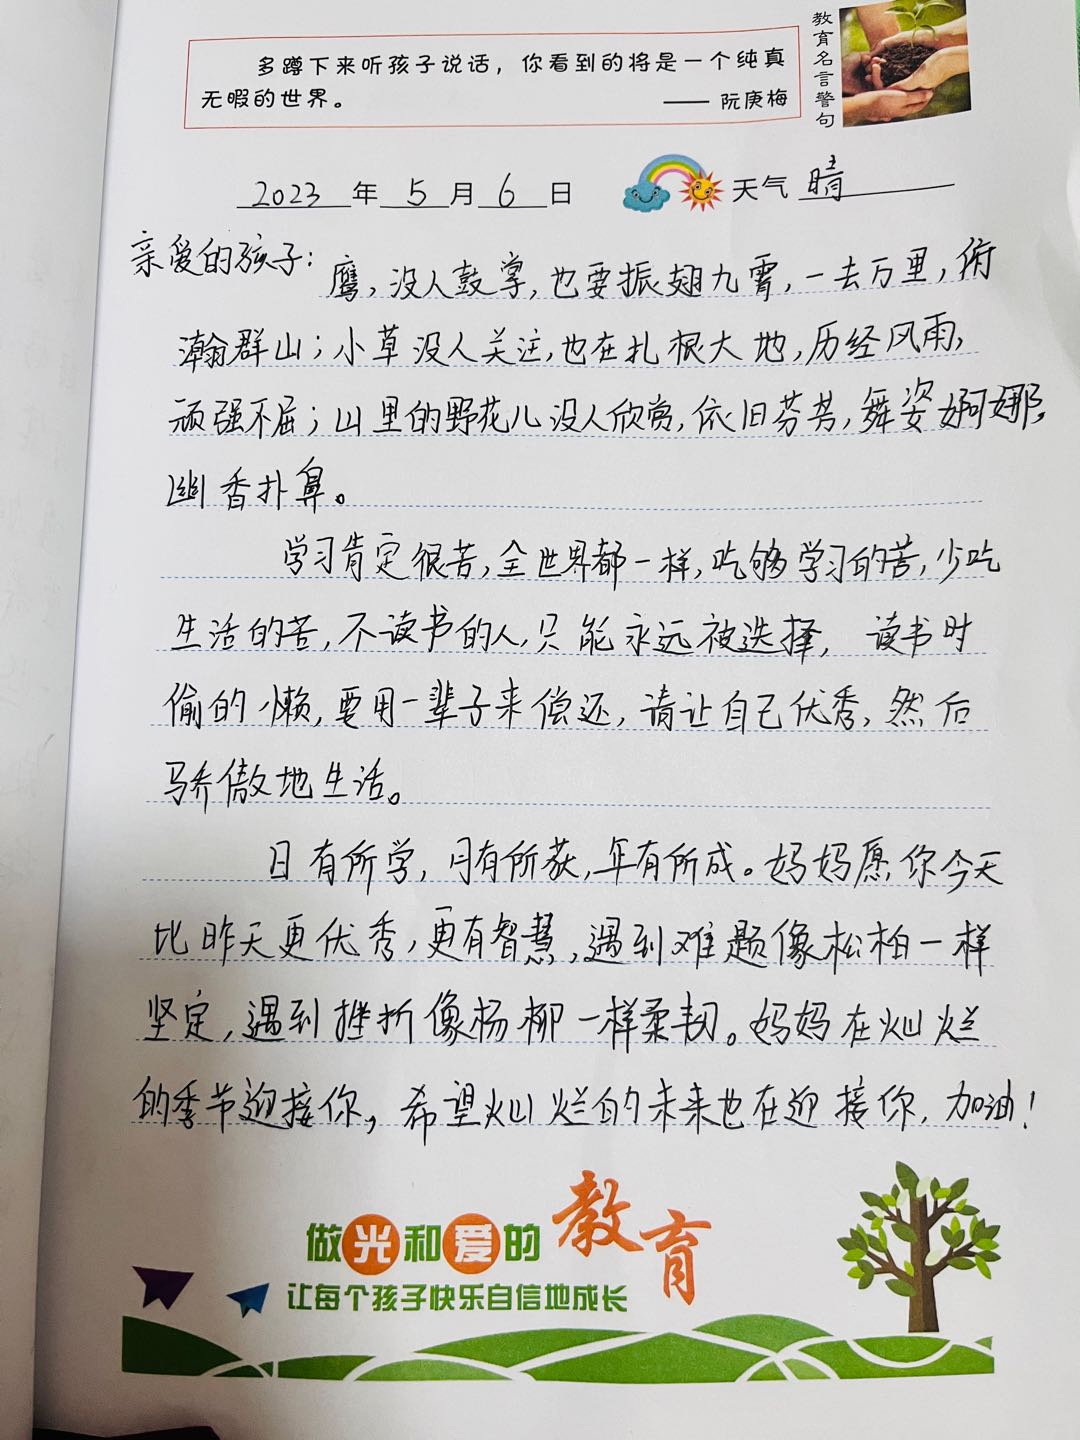 多蹲下来听孩子说话，你看到的将是一个纯真
无暇的世界。 —— 阮庚梅
教育名言警句
2023 年 5 月 6 日 天气 晴
亲爱的孩子：鹰，没人鼓掌，也要振翅九霄，一去万里，俯
瀚群山；小草没人关注，也在扎根大地，历经风雨，
顽强不屈；山里的野花儿没人欣赏，依旧芬芳，舞姿婀娜，
幽香扑鼻。
学习肯定很苦，全世界都一样，吃够学习的苦，少吃
生活的苦，不读书的人，只能永远被选择，读书时
偷的懒，要用一辈子来偿还，请让自己优秀，然后
骄傲地生活。
日有所学，月有所获，年有所成。妈妈愿你今天
比昨天更优秀，更有智慧，遇到难题像松柏一样
坚定，遇到挫折像杨柳一样柔韧。妈妈在灿烂
的季节迎接你，希望灿烂的未来也在迎接你，加油！
做光和爱的教育
让每个孩子快乐自信地成长